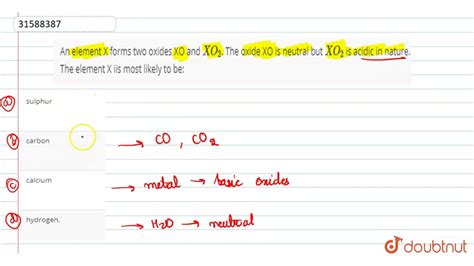 31588387
An element X forms two oxides XO and XO₂. The oxide XO is neutral but XO₂ is acidic in nature.
The element X iis most likely to be:
a sulphur
b carbon → CO , CO₂
c calcium → metal → basic oxides
d hydrogen. → H₂O → neutral
doubtnut